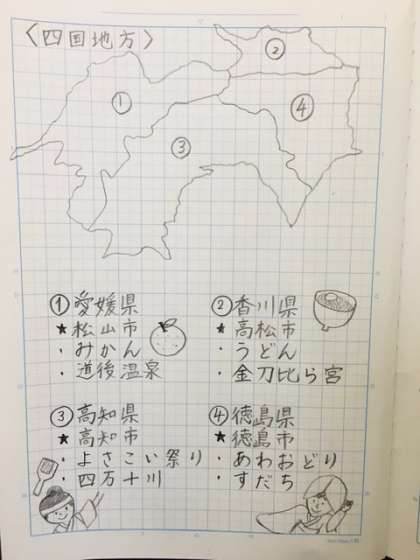 〈四国地方〉
②
①
④
③
①愛媛県
★松山市
・みかん
・道後温泉
②香川県
★高松市
・うどん
・金刀比ら宮
③高知県
★高知市
・よさこい祭り
・四万十川
④徳島県
★徳島市
・あわおどり
・すだち